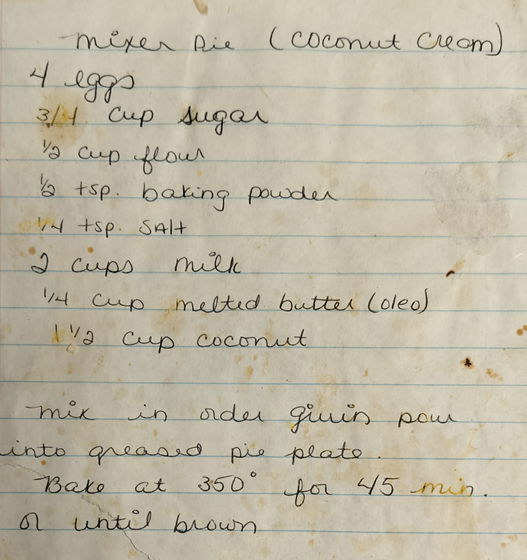 mixer pie (coconut cream)
4 eggs
3/4 cup sugar
1/2 cup flour
1/2 tsp. baking powder
1/4 tsp. SAlt
2 cups milk
1/4 cup melted butter (oleo)
1 1/2 cup coconut
mix in order givin pour
into greased pie plate.
Bake at 350° for 45 min.
or until brown